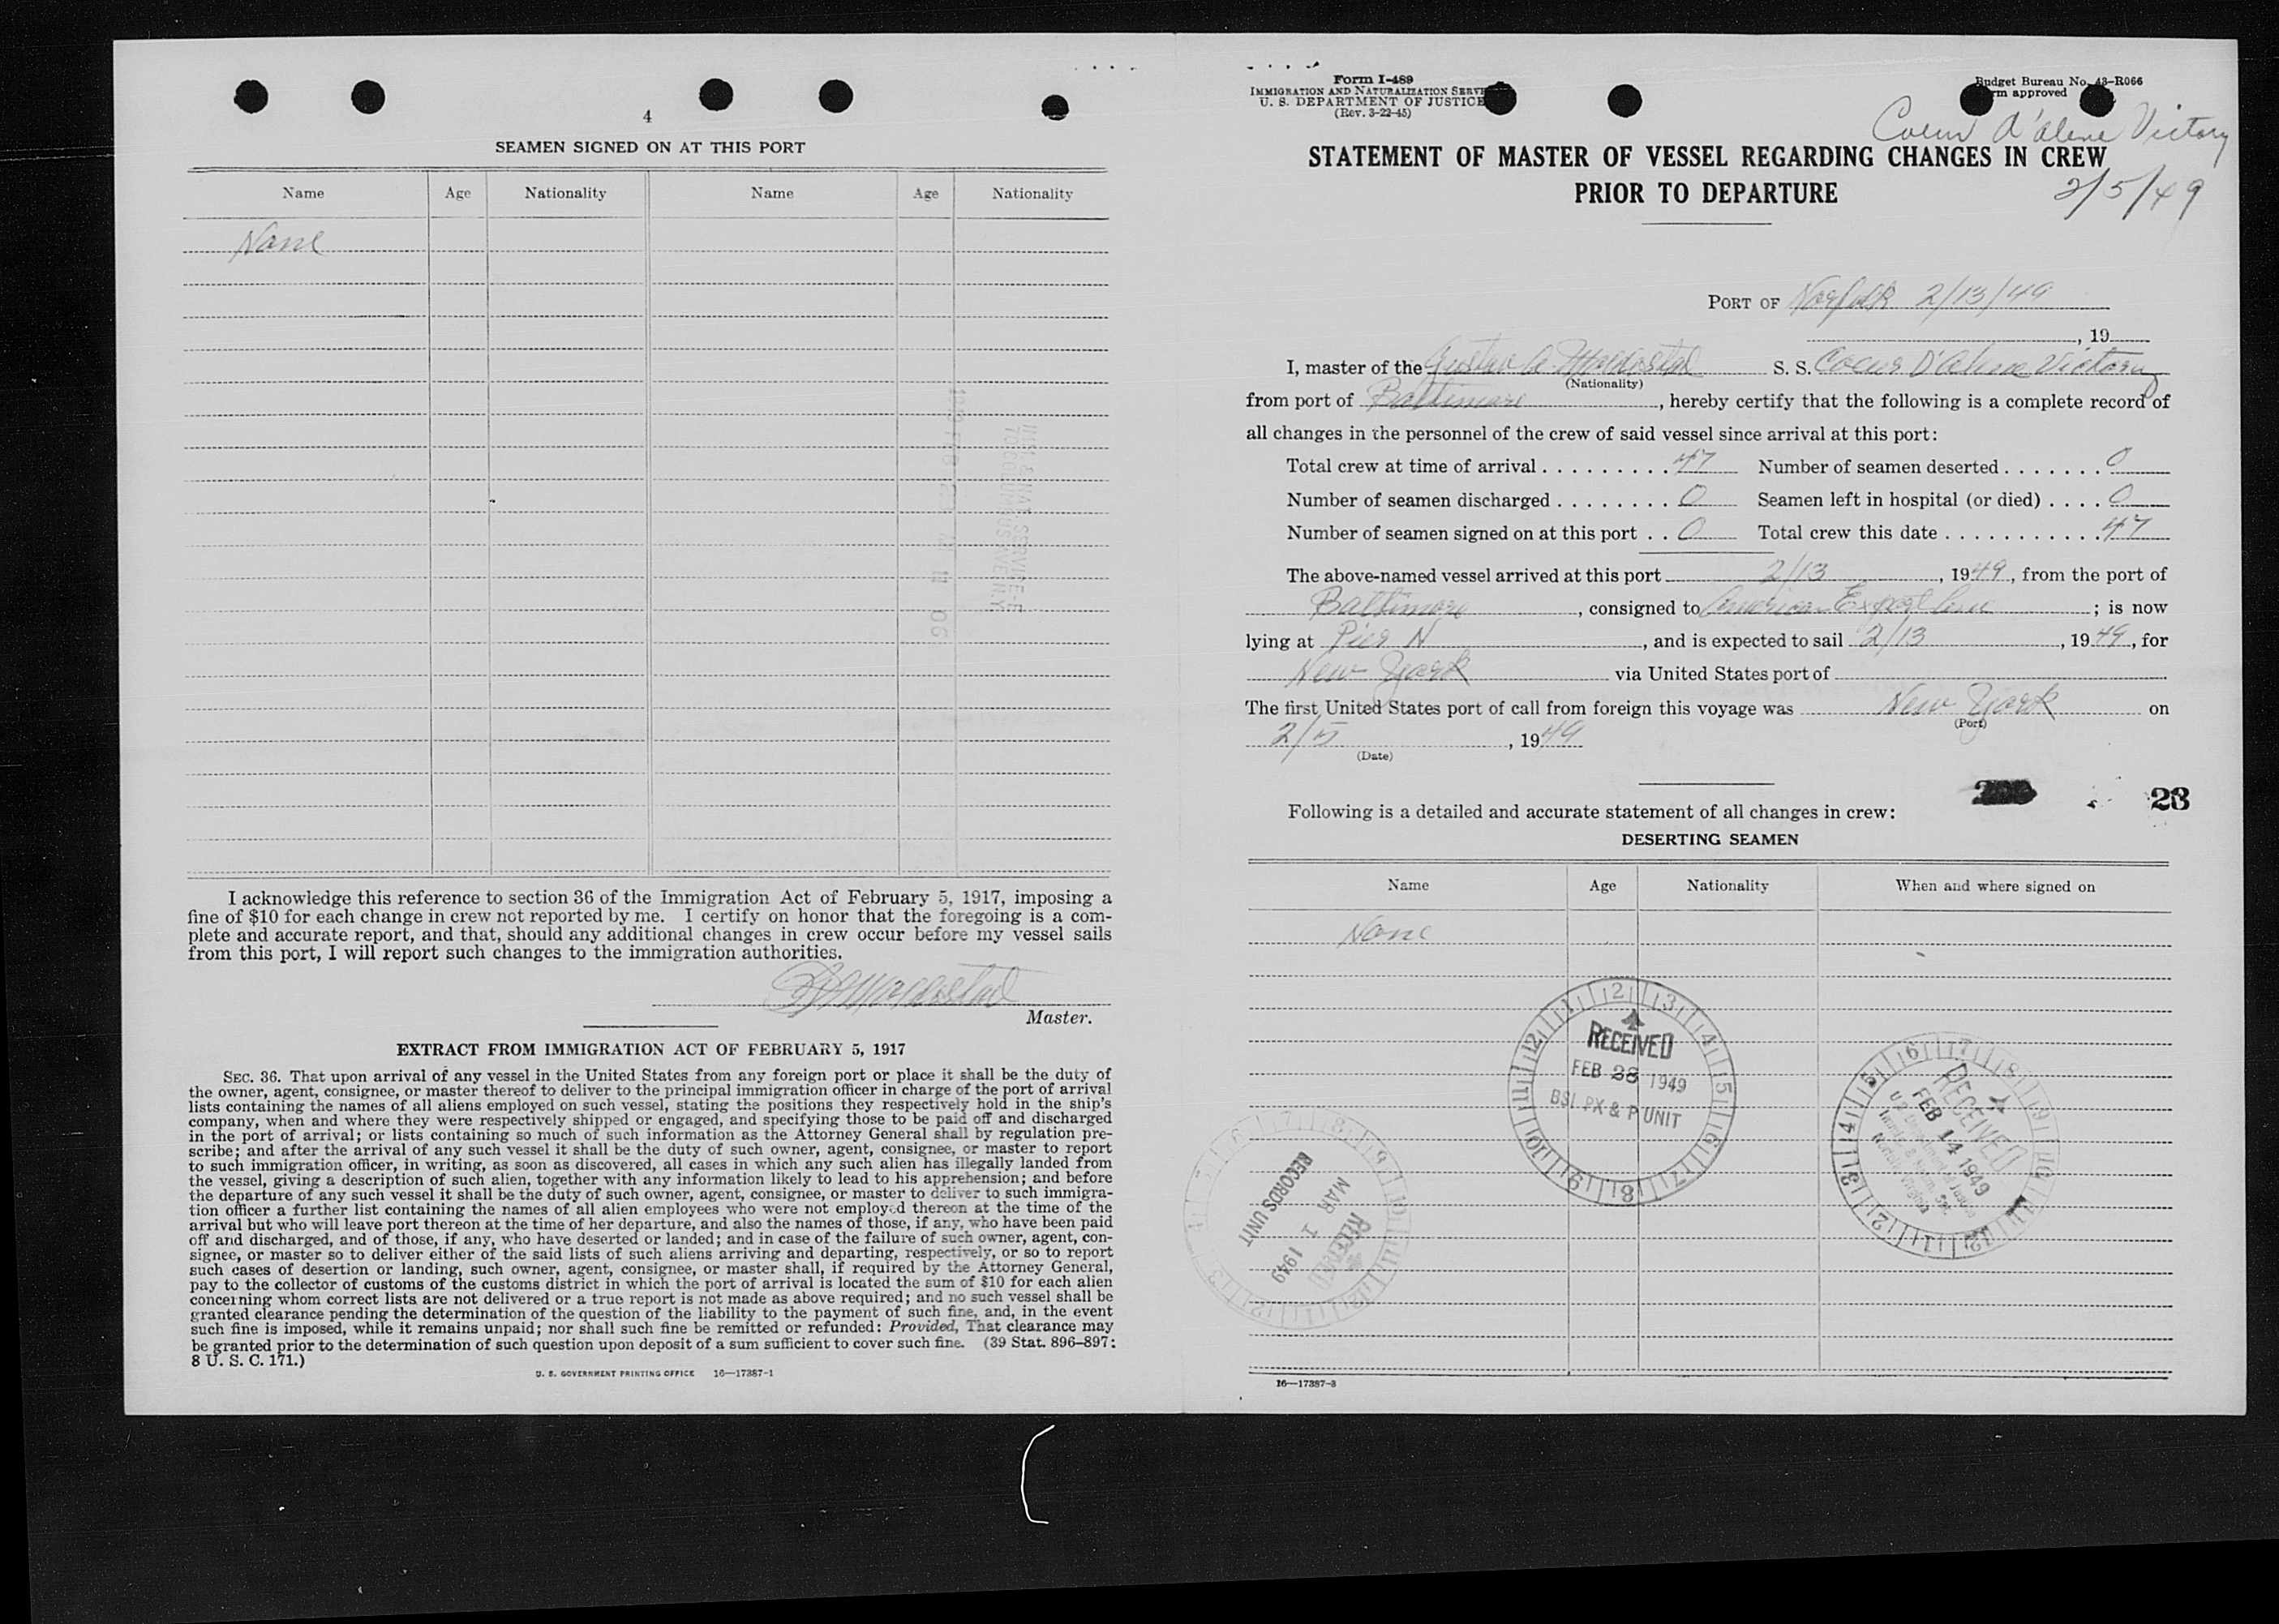 4
SEAMEN SIGNED ON AT THIS PORT
Name Age Nationality Name Age Nationality
None
I acknowledge this reference to section 36 of the Immigration Act of February 5, 1917, imposing a
fine of $10 for each change in crew not reported by me. I certify on honor that the foregoing is a com-
plete and accurate report, and that, should any additional changes in crew occur before my vessel sails
from this port, I will report such changes to the immigration authorities.
Master.
EXTRACT FROM IMMIGRATION ACT OF FEBRUARY 5, 1917
SEC. 36. That upon arrival of any vessel in the United States from any foreign port or place it shall be the duty of
the owner, agent, consignee, or master thereof to deliver to the principal immigration officer in charge of the port of arrival
lists containing the names of all aliens employed on such vessel, stating the positions they respectively hold in the ship's
company, when and where they were respectively shipped or engaged, and specifying those to be paid off and discharged
in the port of arrival; or lists containing so much of such information as the Attorney General shall by regulation pre-
scribe; and after the arrival of any such vessel it shall be the duty of such owner, agent, consignee, or master to report
to such immigration officer, in writing, as soon as discovered, all cases in which any such alien has illegally landed from
the vessel, giving a description of such alien, together with any information likely to lead to his apprehension; and before
the departure of any such vessel it shall be the duty of such owner, agent, consignee, or master to deliver to such immigra-
tion officer a further list containing the names of all alien employees who were not employed thereon at the time of the
arrival but who will leave port thereon at the time of her departure, and also the names of those, if any, who have been paid
off and discharged, and of those, if any, who have deserted or landed; and in case of the failure of such owner, agent, con-
signee, or master so to deliver either of the said lists of such aliens arriving and departing, respectively, or so to report
such cases of desertion or landing, such owner, agent, consignee, or master shall, if required by the Attorney General,
pay to the collector of customs of the customs district in which the port of arrival is located the sum of $10 for each alien
concerning whom correct lists are not delivered or a true report is not made as above required; and no such vessel shall be
granted clearance pending the determination of the question of the liability to the payment of such fine, and, in the event
such fine is imposed, while it remains unpaid; nor shall such fine be remitted or refunded: Provided, That clearance may
be granted prior to the determination of such question upon deposit of a sum sufficient to cover such fine. (39 Stat. 896-897;
8 U. S. C. 171.)
U. S. GOVERNMENT PRINTING OFFICE 16—17387-1
Form I-489
IMMIGRATION AND NATURALIZATION SERVI
U. S. DEPARTMENT OF JUSTICE
(Rev. 3-22-45)
Budget Bureau No. 43-R066
rm approved
Coeur d'alene Victory
STATEMENT OF MASTER OF VESSEL REGARDING CHANGES IN CREW
PRIOR TO DEPARTURE
2/5/49
PORT OF Norfolk 2/13/49
, 19
I, master of the Gustav S. S. Coeur D'Alene Victory
(Nationality)
from port of Baltimore, hereby certify that the following is a complete record of
all changes in the personnel of the crew of said vessel since arrival at this port:
Total crew at time of arrival . . . . . . . . . 47 Number of seamen deserted . . . . . . . 0
Number of seamen discharged . . . . . . . . 0 Seamen left in hospital (or died) . . . . 0
Number of seamen signed on at this port . . 0 Total crew this date . . . . . . . . . . . 47
The above-named vessel arrived at this port 2/13, 1949, from the port of
Baltimore, consigned to American Export Line; is now
lying at Pier N, and is expected to sail 2/13, 1949, for
New York via United States port of
The first United States port of call from foreign this voyage was New York on
(Port)
2/5, 1949
(Date)
23
Following is a detailed and accurate statement of all changes in crew:
DESERTING SEAMEN
Name Age Nationality When and where signed on
None
RECEIVED
FEB 28 1949
BSI PX & P UNIT
RECEIVED
FEB 14 1949
RECORDS UNIT
MAR 1 1949
RECEIVED
16—17387-3